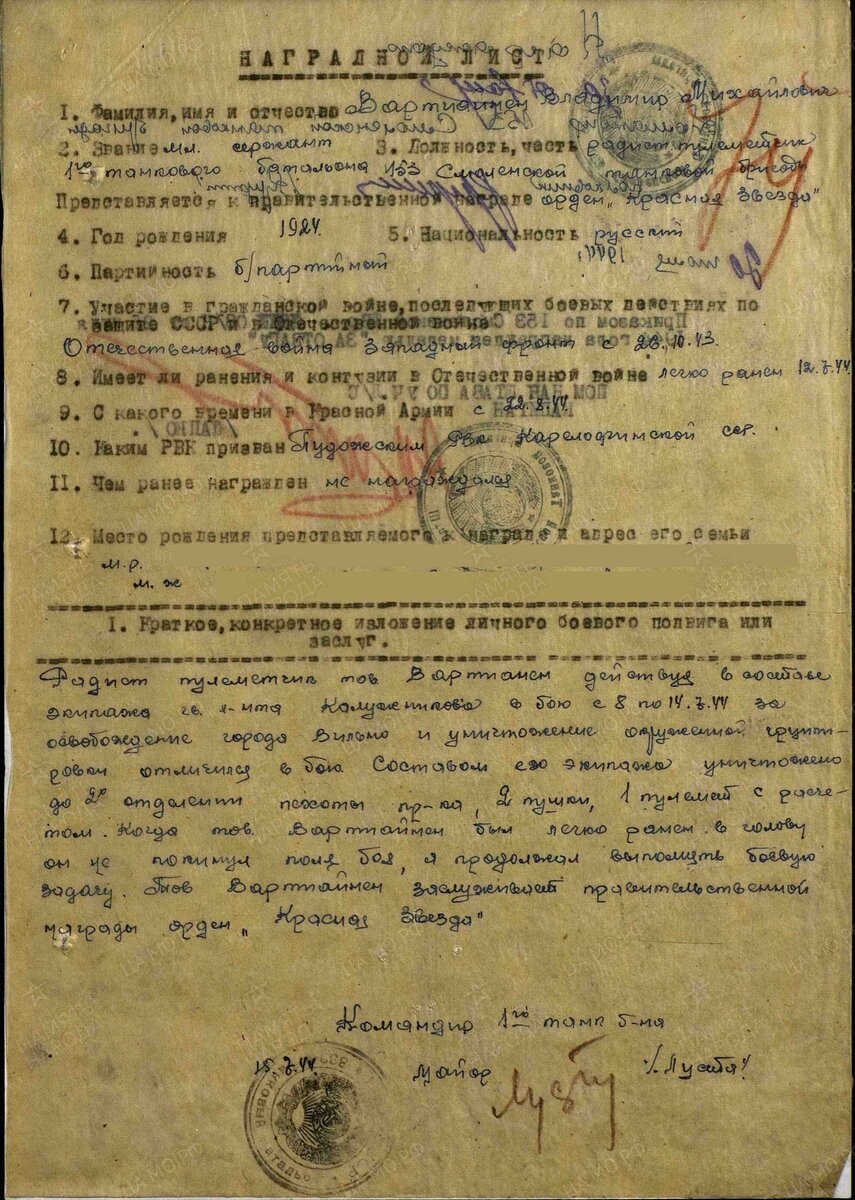 НАГРАДНОЙ ЛИСТ
1. Фамилия, имя и отчество Вартиайнен Владимир Михайлович
2. Звание мл. сержант 3. Должность, часть радист пулеметчик
1го танкового батальона 153 Смоленской танковой бригады
Представляется к правительственной награде орден „Красная Звезда"
4. Год рождения 1924. 5. Национальность русский
6. Партийность б/партийный
7. Участие в гражданской войне, последующих боевых действиях по
защите СССР и в Отечественной войне
Отечественная война Западный фронт с 28.10.43.
8. Имеет ли ранения и контузии в Отечественной войне легко ранен 12.7.44.
9. С какого времени в Красной Армии с 22.8.44.
10. Каким РВК призван Пудожским РВК Карелофинской сср.
11. Чем ранее награжден не награждался
12. Место рождения представляемого к награде и адрес его семьи
м.р.
м. ж
1. Краткое, конкретное изложение личного боевого подвига или
заслуг.
Радист пулеметчик тов Вартианен действуя в составе
экипажа гв. л-нта Калужникова в бою с 8 по 14.7.44 за
освобождение города Вильно и уничтожение окруженной групи-
ровки отличился в бою Составом его экипажа уничтожено
до 2х отделений пехоты пр-ка, 2 пушки, 1 пулемет с расче-
том. Когда тов. Вартиайнен был легко ранен в голову
он не покинул поля боя, а продолжал выполнять боевую
задачу. Тов Вартиайнен заслуживает правительственной
награды орден „Красная Звезда"
Командир 1го танк б-на
15.7.44. майор /Пуста/